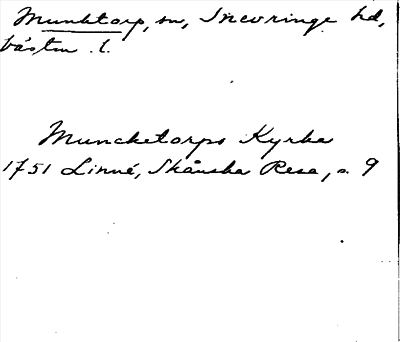 Munktorp, sn, Snevringe hd,
västm. l.
Muncketorps Kyrka
1751 Linné, Skånska Resa, s. 9